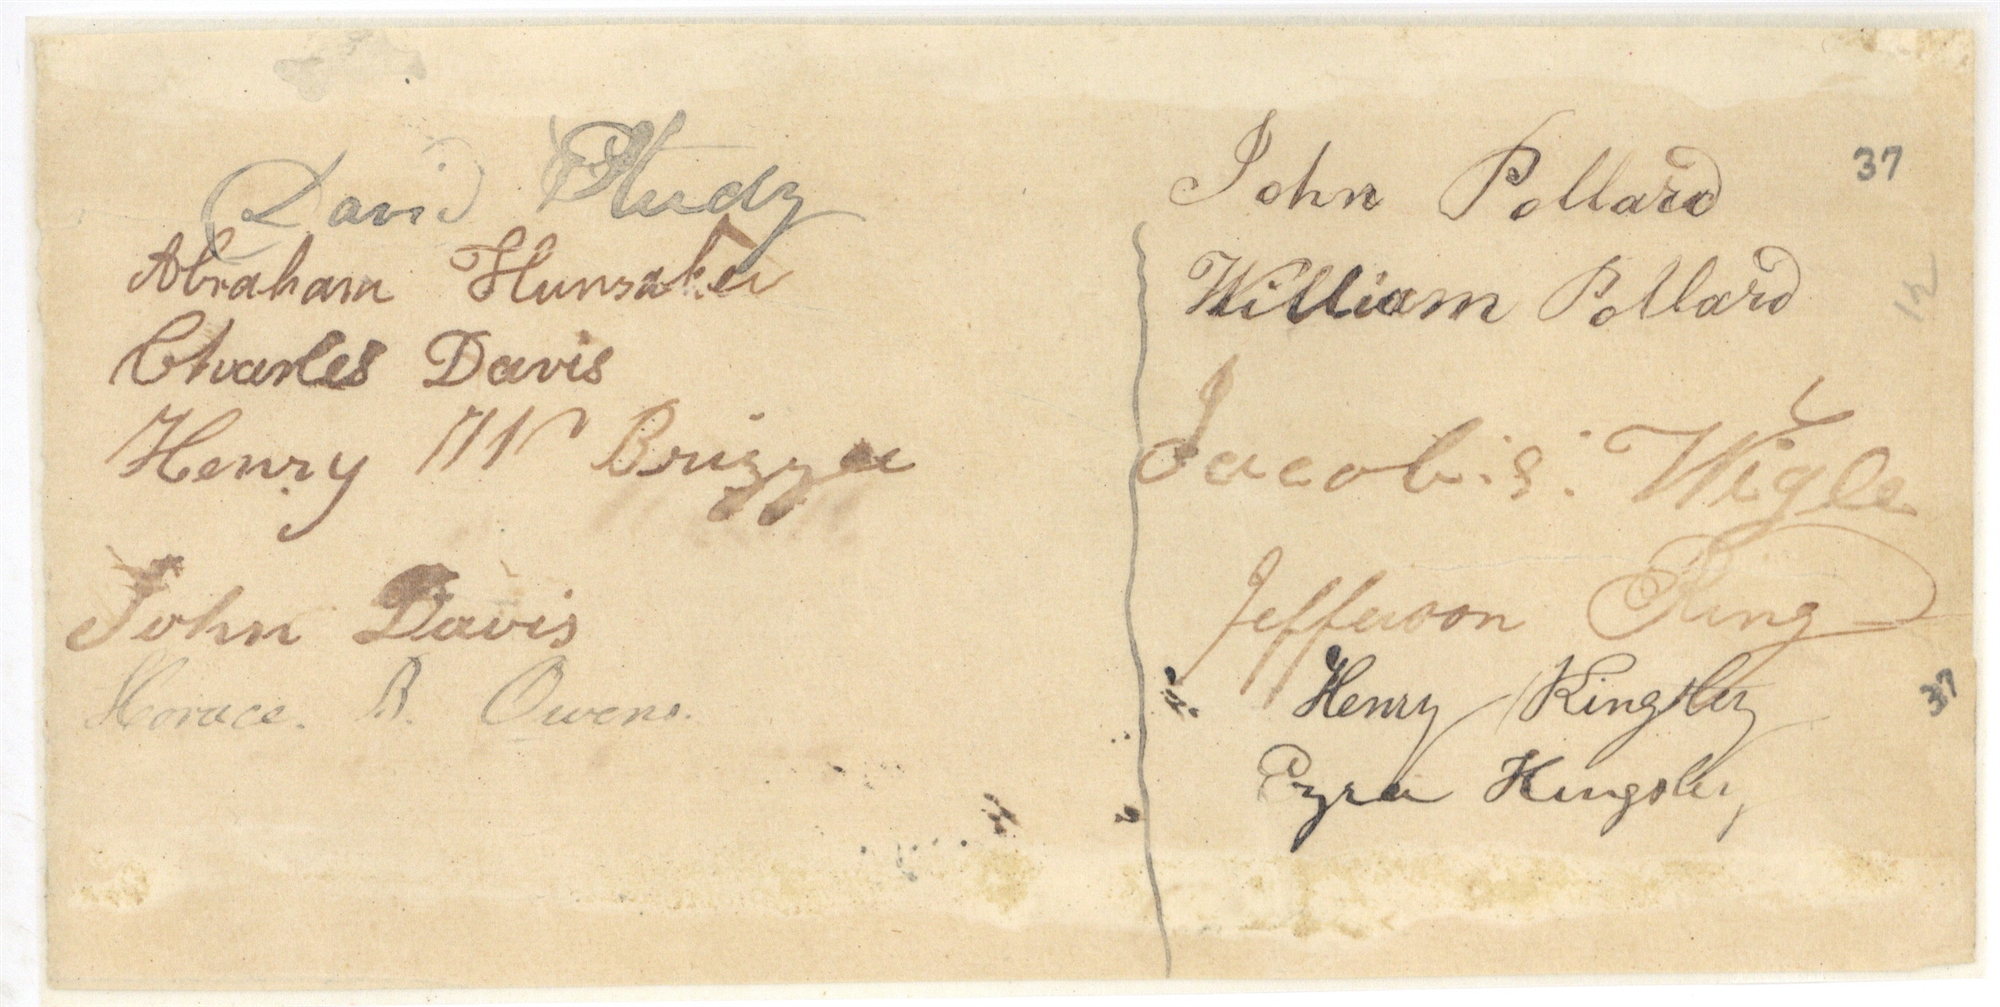 David Study
Abraham Hunsaker
Charles Davis
Henry W Brizzee
John Davis
Horace. B. Owens.
John Pollard
37
William Pollard
12
Jacob. S. Wigle
Jefferson Ring
Henry Kingsley
37
Ezra Kingsley